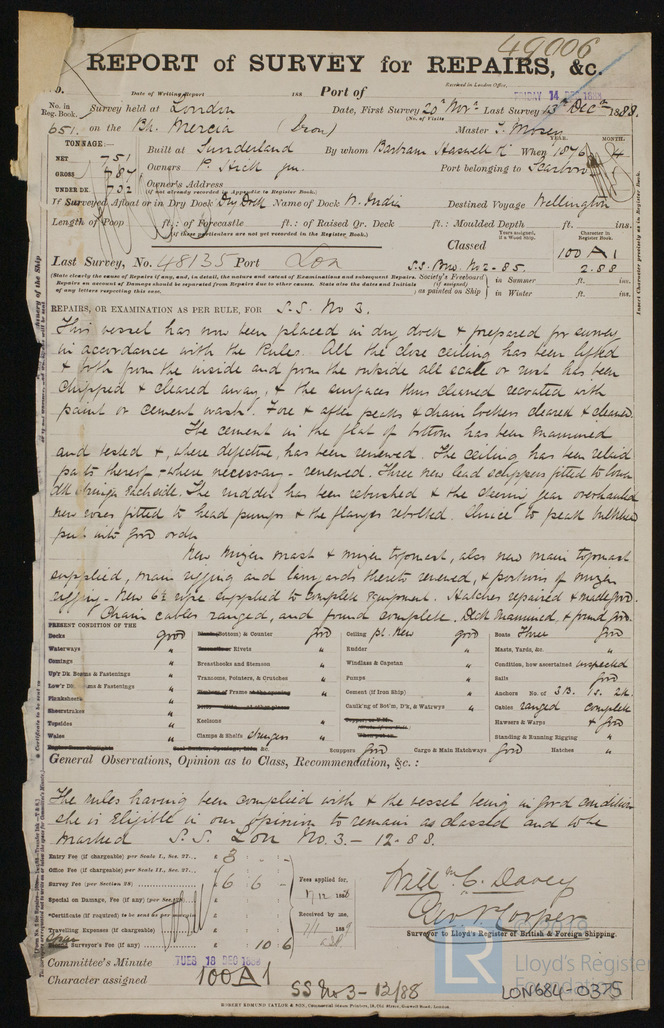 49006
REPORT of SURVEY for REPAIRS, &c.
Date of Writing Report 188 Port of
Received in London Office, FRIDAY 14 DEC 1888
No. in Reg. Book. Survey held at London Date, First Survey 20th Novr Last Survey 13th Decr 1888.
(No. of Visits
651. on the Bk. Mercia (Iron) Master J. Moses
TONNAGE:—
NET 751
GROSS 787
UNDER DK. 732
Built at Sunderland By whom Bartram Haswell When 1876 4
YEAR. MONTH.
Owners P. Hick jun. Port belonging to Scarboro
Owner's Address
(if not already recorded in Appendix to Register Book.)
If Surveyed Afloat or in Dry Dock Dry Dock Name of Dock W. India Destined Voyage Wellington
Length of Poop ft.: of Forecastle ft.: of Raised Qr. Deck ft.: Moulded Depth ft. ins.
(If these particulars are not yet recorded in the Register Book.)
Classed
Character in Register Book.
100 A 1
2.88
Last Survey, No. 48135 Port Lon S.S. No 2-85.
(State clearly the cause of Repairs if any; and, in detail, the nature and extent of Examinations and subsequent Repairs.
Repairs on account of Damage should be separated from Repairs due to other causes. State also the dates and Initials
of any letters respecting this case.)
Society's Freeboard (if assigned) as painted on Ship
in Summer ft. ins.
in Winter ft. ins.
Insert Character precisely as in Register Book.
REPAIRS, OR EXAMINATION AS PER RULE, FOR S.S. No 3.
This vessel has now been placed in dry dock & prepared for survey
in accordance with the Rules. All the close ceiling has been lifted
& both from the inside and from the outside all scale or rust has been
chipped & cleared away, & the surfaces thus cleaned recoated with
paint or cement wash. Fore & after peaks & chain lockers cleared & cleaned.
The cement in the flat of bottom has been examined
and tested & where defective, has been renewed. The ceiling has been relaid
parts thereof - where necessary - renewed. Three new lead scuppers fitted to lower
dk stringer each side. The rudder has been rebushed & the steering gear overhauled
new cores fitted to head pumps & the flanges rebolted. Sluice to peak bulkhead
put into good order
New mizen mast & mizen topmast, also new main topmast
supplied, main rigging and lanyards thereto renewed, & portions of mizen
rigging - New 6½ rope supplied to complete equipment. Hatches repaired & made good.
Chain cables ranged, and found complete. Deck examined, & found good.
PRESENT CONDITION OF THE
Decks good
Waterways "
Comings "
Up'r Dk Beams & Fastenings "
Low'r Dk Beams & Fastenings "
Planksheers "
Sheerstrakes "
Topsides "
Wales "
(Bottom) & Counter good
Rivets "
Breasthooks and Stemson "
Transoms, Pointers, & Crutches "
of Frame "
Keelsons "
Clamps & Shelfs stringers "
Ceiling pt. New good
Rudder "
Windlass and Capstan "
Pumps "
Cement (if Iron Ship) "
Caulk'ng of Bot'm, D'k, & Watrwys "
Scuppers good Cargo & Main Hatchways good Hatches "
Boats Three good
Masts, Yards, &c. "
Condition, how ascertained inspected
Sails good
Anchors No. of 3B. 1s. 2k.
Cables ranged complete
Hawsers & Warps & good
Standing & Running Rigging "
General Observations, Opinion as to Class, Recommendation, &c.:
The rules having been complied with & the vessel being in good condition
she is eligible in our opinion to remain as classed and to be
marked S.S. Lon No. 3. - 12-88.
Entry Fee (if chargeable) per Scale I., Sec. 27... £
Office Fee (if chargeable) per Scale II., Sec. 27...
Survey Fee (per Section 28) £ 6 6 -
Special on Damage, Fee (if any) (per Sec. 28)
*Certificate (if required) to be sent as per margin
Travelling Expenses (if chargeable)
Surveyor's Fee (if any) 10.6
Fees applied for,
17.12 1888
Received by me,
7/1 1889
Willm C. Davey
Geo. R. Cooper
Surveyor to Lloyd's Register of British & Foreign Shipping.
Committee's Minute TUES 18 DEC 1888
Character assigned 100 A 1
SS No 3 - 12/88
LON684-0375
ROBERT EDMUND TAYLOR & SON, Commercial Steam Printers, 19, Old Street, Goswell Road, London.
© 2019
LR
Lloyd's Register
Foundation